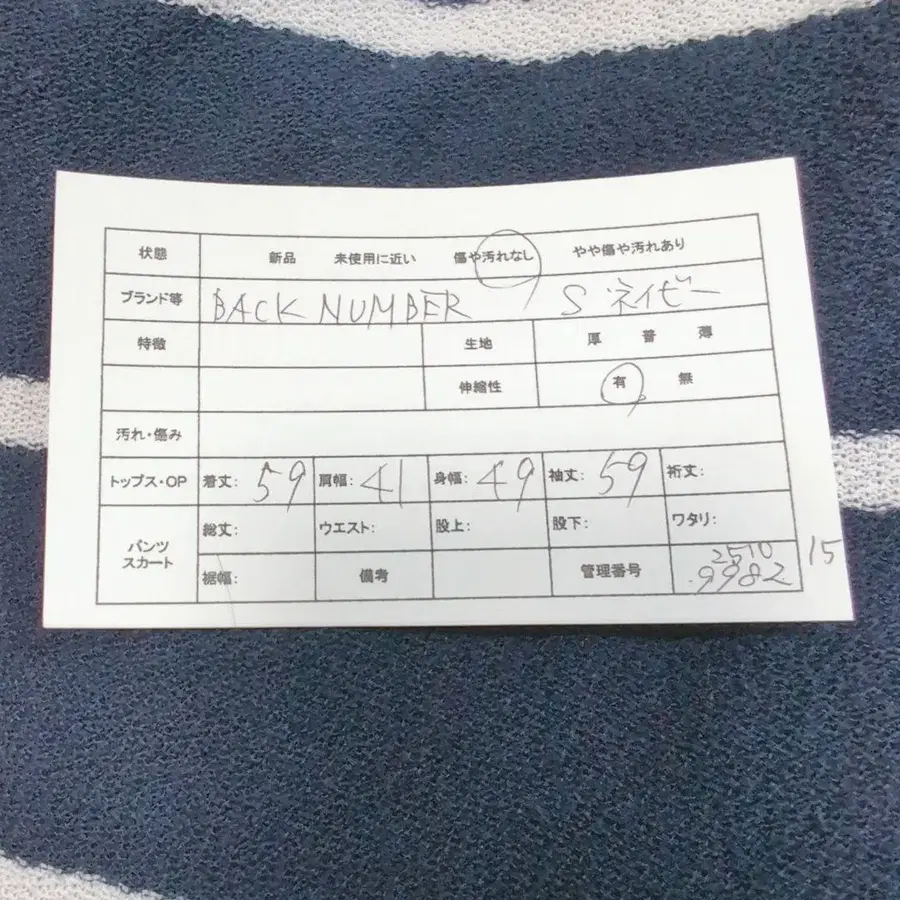 状態 新品 未使用に近い 傷や汚れなし やや傷や汚れあり
ブランド等 BACK NUMBER S ネイビー
特徴 生地 厚 普 薄
伸縮性 有 無
汚れ・傷み
トップス・OP 着丈: 59 肩幅: 41 身幅: 49 袖丈: 59 裄丈:
パンツ スカート 総丈: ウエスト: 股上: 股下: ワタリ:
裾幅: 備考 管理番号 2510 9982 15